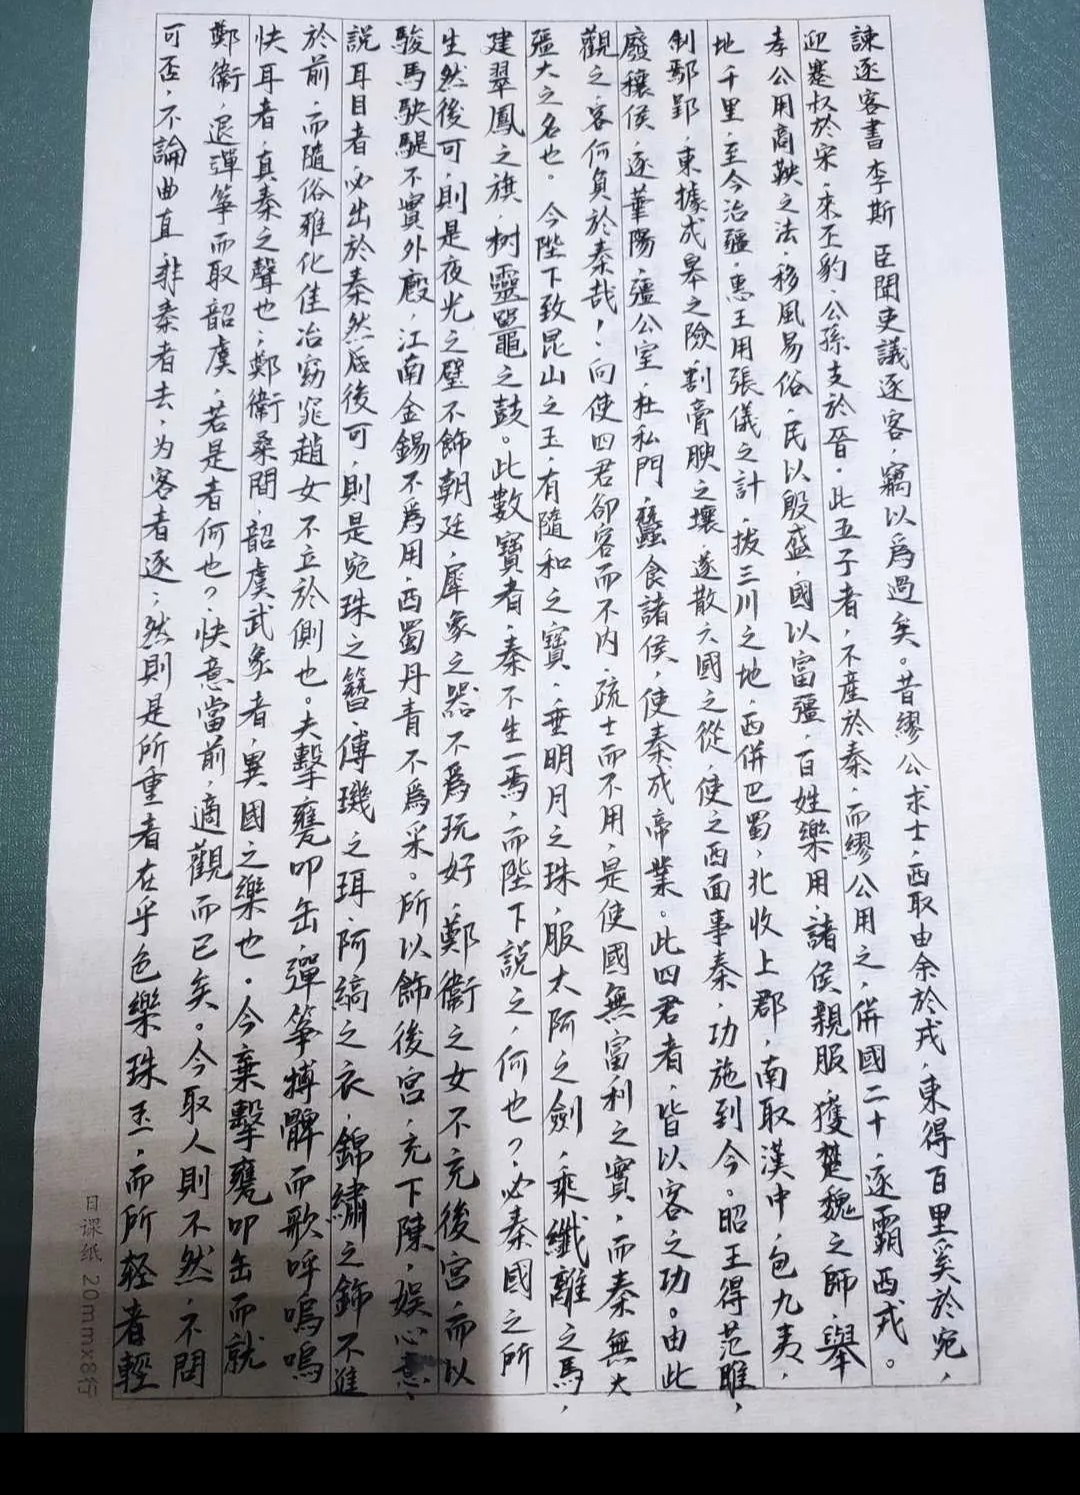 諫逐客書李斯 臣聞吏議逐客，竊以爲過矣。昔繆公求士，西取由余於戎，東得百里奚於宛，
迎蹇叔於宋，來丕豹、公孫支於晉，此五子者，不產於秦，而繆公用之，併國二十，逐霸西戎。
孝公用商鞅之法，移風易俗，民以殷盛，國以富彊，百姓樂用，諸侯親服，獲楚魏之師，舉
地千里，至今治彊。惠王用張儀之計，拔三川之地，西併巴蜀，北收上郡，南取漢中，包九夷，
制鄢郢，東據成皋之險，割膏腴之壤，遂散六國之從，使之西面事秦，功施到今。昭王得范雎，
廢穰侯，逐華陽，彊公室，杜私門，蠶食諸侯，使秦成帝業。此四君者，皆以客之功。由此
觀之，客何負於秦哉！向使四君卻客而不內，疏士而不用，是使國無富利之實，而秦無大
彊大之名也。今陛下致昆山之玉，有隨和之寶，垂明月之珠，服太阿之劍，乘纖離之馬，
建翠鳳之旗，树靈鼉之鼓。此數寶者，秦不生一焉，而陛下說之，何也？必秦國之所
生然後可，則是夜光之璧不飾朝廷，犀象之器不爲玩好，鄭衞之女不充後宮，而以
駿馬駃騠不實外廄，江南金錫不爲用，西蜀丹青不爲采。所以飾後宮，充下陳，娛心意，
說耳目者，必出於秦然後可，則是宛珠之簪，傅璣之珥，阿縞之衣，錦繡之飾不進
於前，而隨俗雅化佳冶窈窕趙女不立於側也。夫擊甕叩缶，彈箏搏髀而歌呼嗚嗚
快耳者，真秦之聲也；鄭衞桑間，韶虞武象者，異國之樂也。今棄擊甕叩缶而就
鄭衞，退彈箏而取韶虞，若是者何也？快意當前，適觀而已矣。今取人則不然，不問
可否，不論曲直，非秦者去，为客者逐；然則是所重者在乎色樂珠玉，而所轻者輕
日课纸 20mmx8行